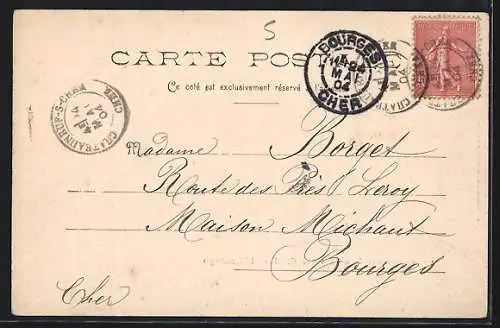 5
CARTE POS
Ce coté est exclusivement réservé
BOURGES
MAI
04
CHER
CHATEAUNEUF-S-CHER
CHER
MAI
04
Madame Borget
Route des Prés Leroy
Maison Michaut
Bourges
Cher